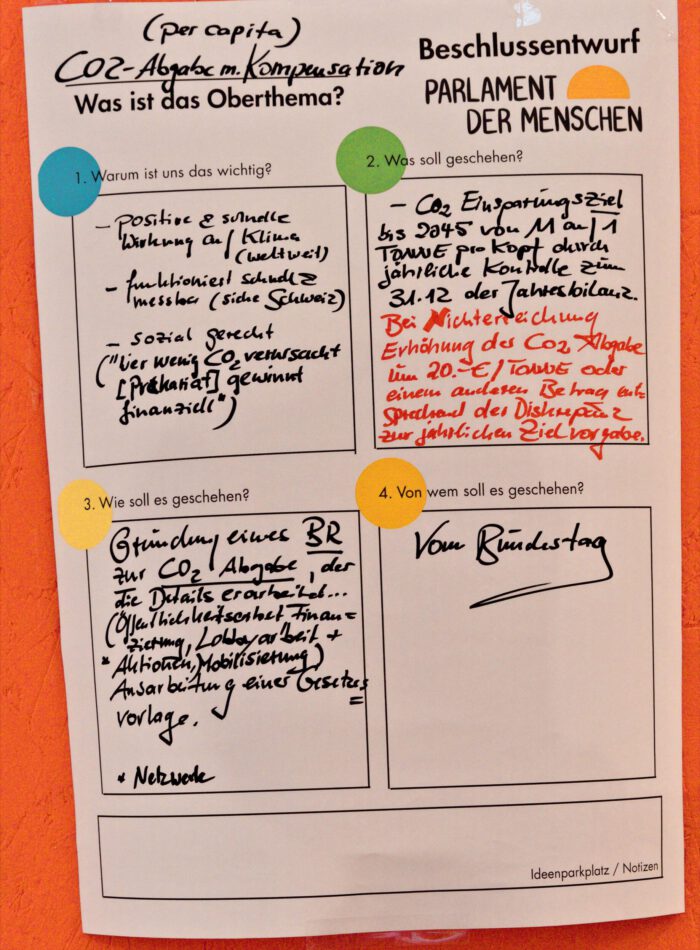 (per capita)
CO2-Abgabe m. Kompensation
Was ist das Oberthema?
Beschlussentwurf
PARLAMENT
DER MENSCHEN
1. Warum ist uns das wichtig?
- positive & schnelle
Wirkung auf Klima
(weltweit)
- funktioniert schnell &
messbar (siehe Schweiz)
- sozial gerecht
("Wer wenig CO2 verursacht
[Prekariat] gewinnt
finanziell")
2. Was soll geschehen?
- CO2 Einsparungsziel
bis 2045 von 11 auf 1
TONNE pro Kopf durch
jährliche Kontrolle zum
31.12 der Jahresbilanz.
Bei Nichterreichung
Erhöhung der CO2 Abgabe
um 20.-€/TONNE oder
einem anderen Betrag ent-
sprechend der Diskrepanz
zur jährlichen Zielvorgabe.
3. Wie soll es geschehen?
Gründung eines BR
zur CO2 Abgabe, der
die Details erarbeitet...
(Öffentlichkeitsarbeit Finan=
zierung, Lobbyarbeit +
* Aktionen, Mobilisierung)
Ausarbeitung einer Gesetzes
=
vorlage.
* Netzwerk
4. Von wem soll es geschehen?
Vom Bundestag
Ideenparkplatz / Notizen